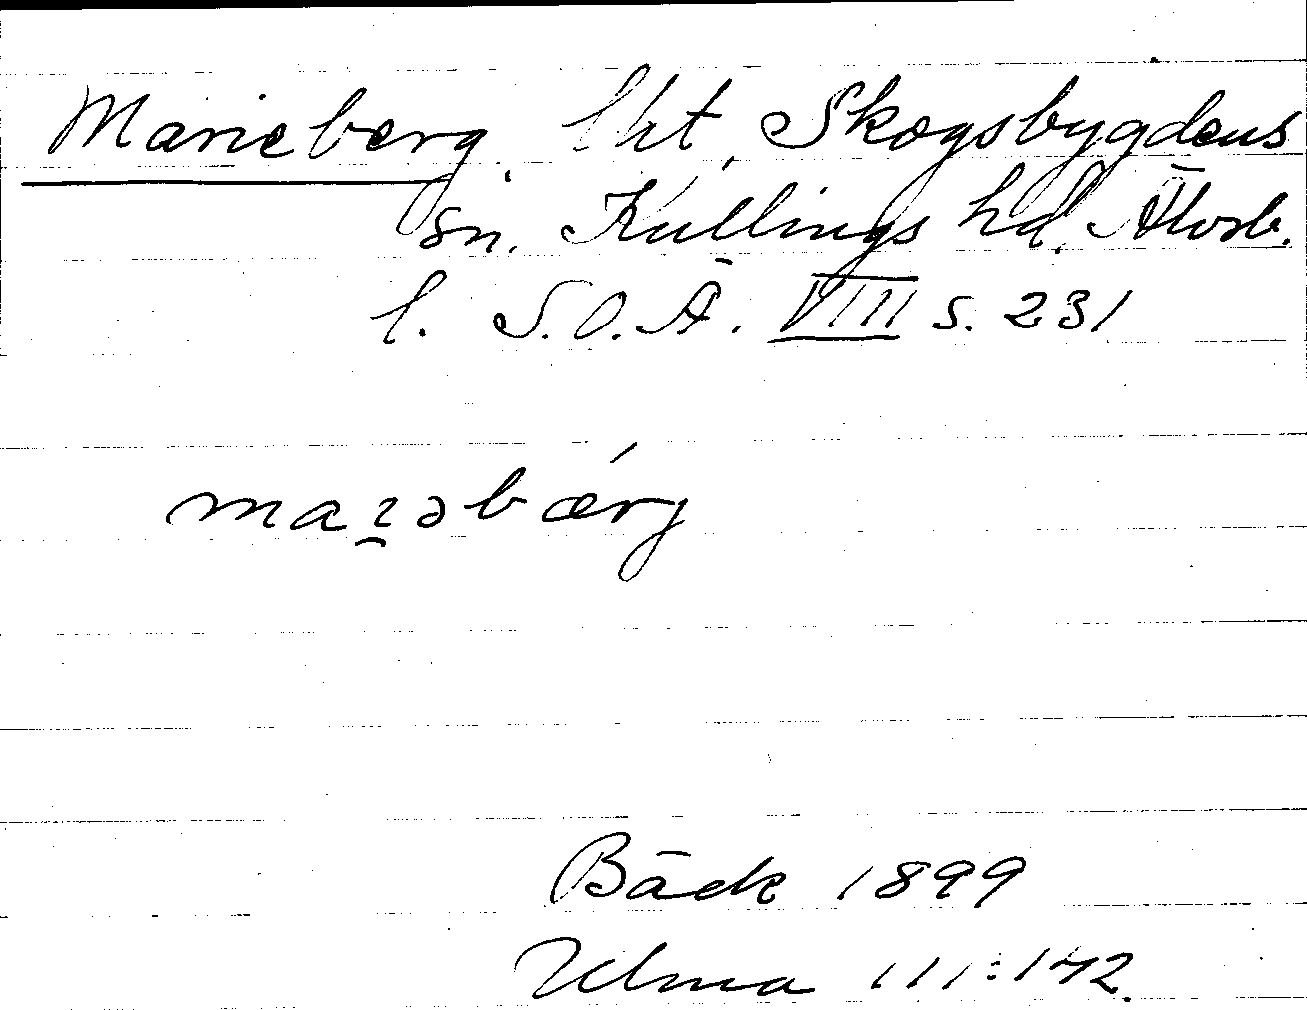 Marieberg, lht, Skogsbygdens
sn. Kullings hd. Älvsb.
l. S.O.Ä. VIII s. 231
maɿ̯əbǽrj
Bäck 1899
Ulma 111:142.